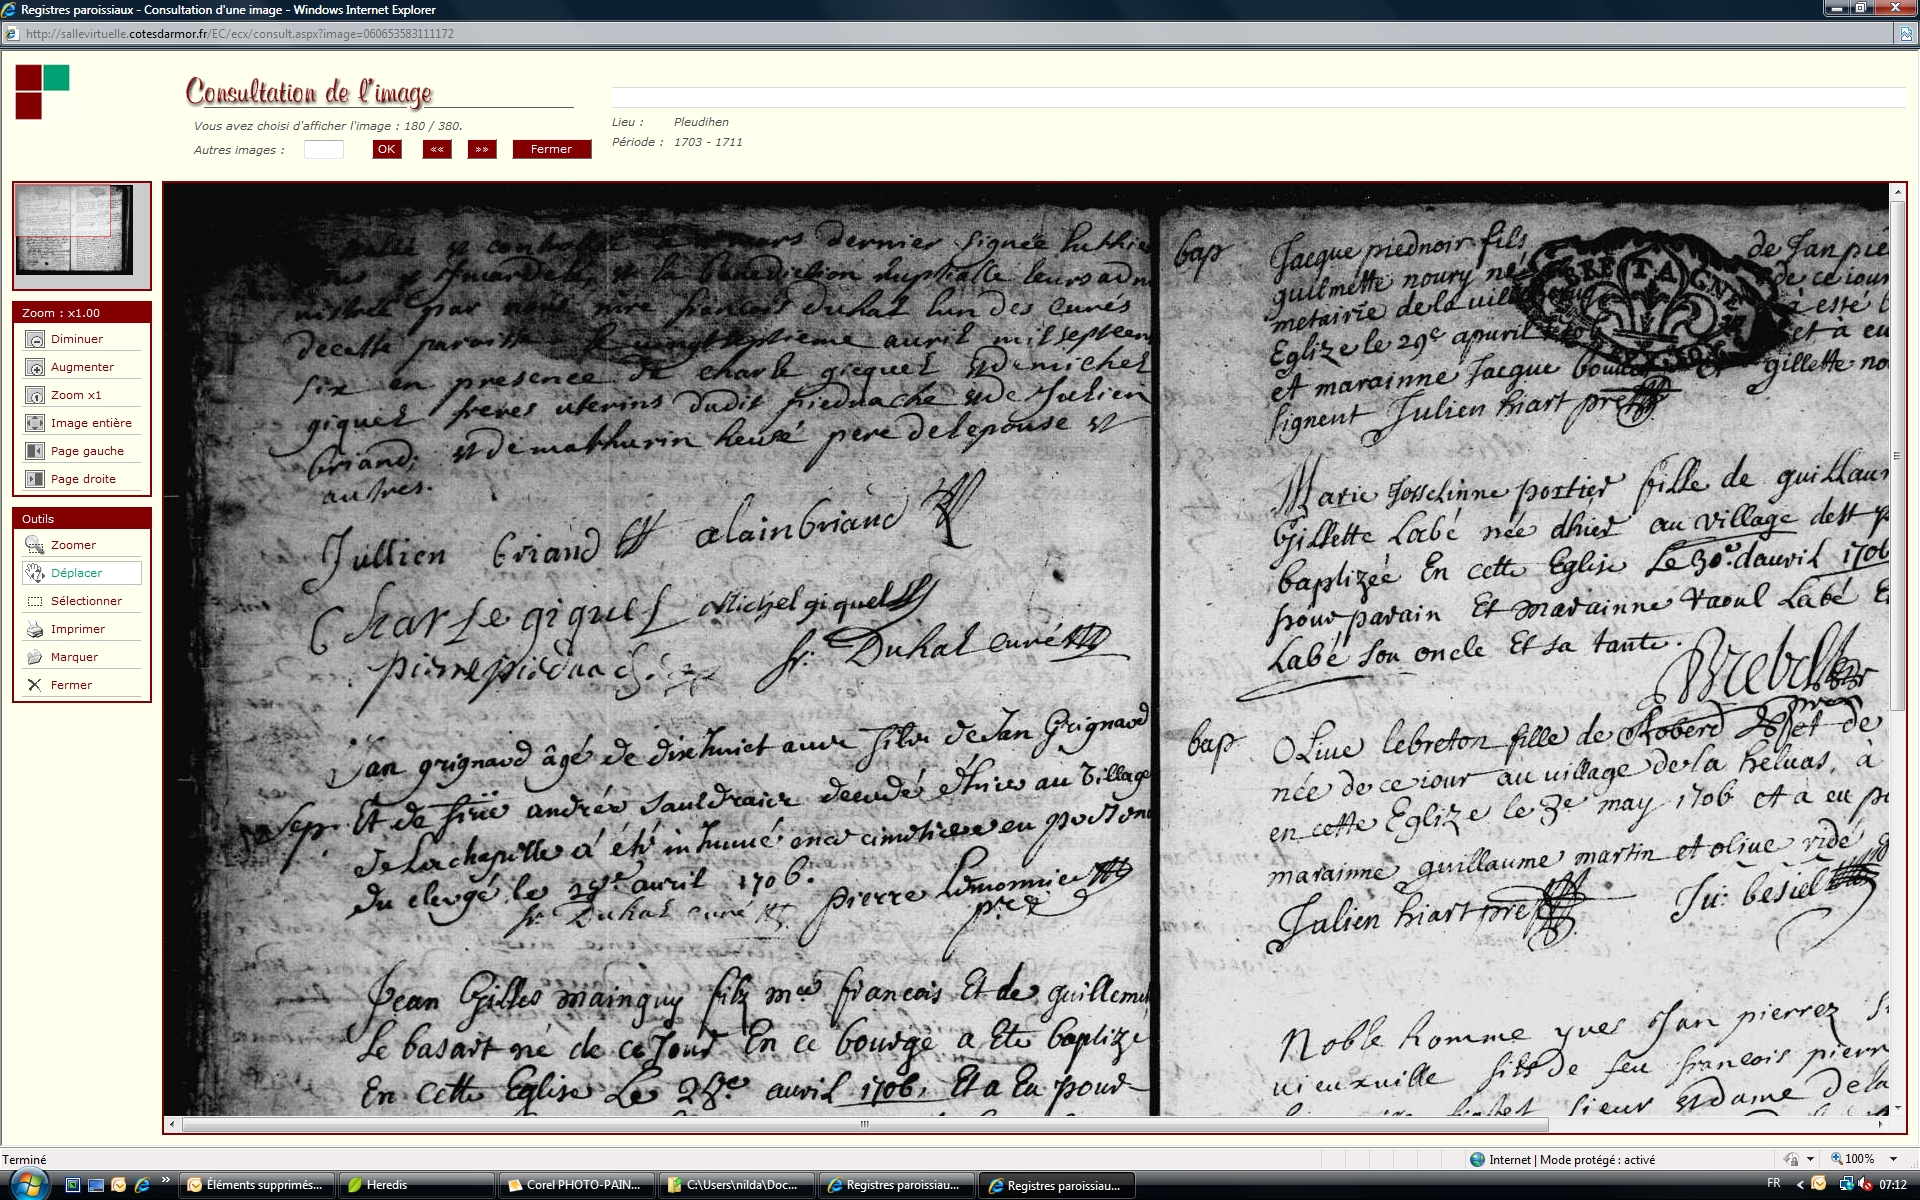 Registres paroissiaux - Consultation d'une image - Windows Internet Explorer
http://sallevirtuelle.cotesdarmor.fr/EC/ecx/consult.aspx?image=060653583111172
Consultation de l'image
Vous avez choisi d'afficher l'image : 180 / 380.
Autres images :
OK
««
»»
Fermer
Lieu : Pleudihen
Période : 1703 - 1711
Zoom : x1.00
Diminuer
Augmenter
Zoom x1
Image entière
Page gauche
Page droite
Outils
Zoomer
Déplacer
Sélectionner
Imprimer
Marquer
Fermer
mars dernier signée
et la benediction nuptialle leur
par mre francois Duhal lun des curés
decette paroisse le vingt septieme avril mil septcen
six en presence de charle gicquel et de michel
giquel freres uterins dudit piednache et de Julien
briand, et de mathurin heusé pere de lepouse et
autres.
Jullien briand alain briand
Charle giquel Michel giquel
pierre fr: Duhal curé
Jan grignard âgé de dixhuict ans fils de Jan Grignard
Sep. Et de andrée decedé d'hier au village
de la chapelle a été inhumé en ce cimetiere en
du clergé le avril 1706.
fr: Duhal curé pierre Lemonnier
pre
Jean Gilles mainguy fils francois Et de guilleme
Le basart né de ce Jour En ce bourge a Ete baptizé
En cette Eglise Le 28e avril 1706, Et a Eu pour
bap Jacque piednoir fils de Jan pie
guilmette noury né de ce iour
metairie de la ville à esté b
Eglize le 29e apuril et à eu
et marainne Jacque gillette no
signent Julien hiart pre
BRETAGNE
Marie Josselinne portier fille de guillau
Gillette Labé née dhier au village dest p
baptizée En cette Eglise Le 30e davril 1706
pour parain Et marainne raoul Labé E
Labé son oncle Et sa tante.
bap Oliue lebreton fille de Roberd et de
née de ce iour au village de la heluas, à
en cette Eglize le 3e may 1706 et à eu p
marainne guillaume martin et oliue vidé
Julien hiart pre Ju: besiel
Noble homme yves Jan pierrez
vieuxville fils de feu francois pierr
sieur et dame de la
Terminé
Internet | Mode protégé : activé
100%
Éléments supprimés...
Heredis
Corel PHOTO-PAIN...
C:\Users\nilda\Doc...
Registres paroissiau...
Registres paroissiau...
FR
07:12